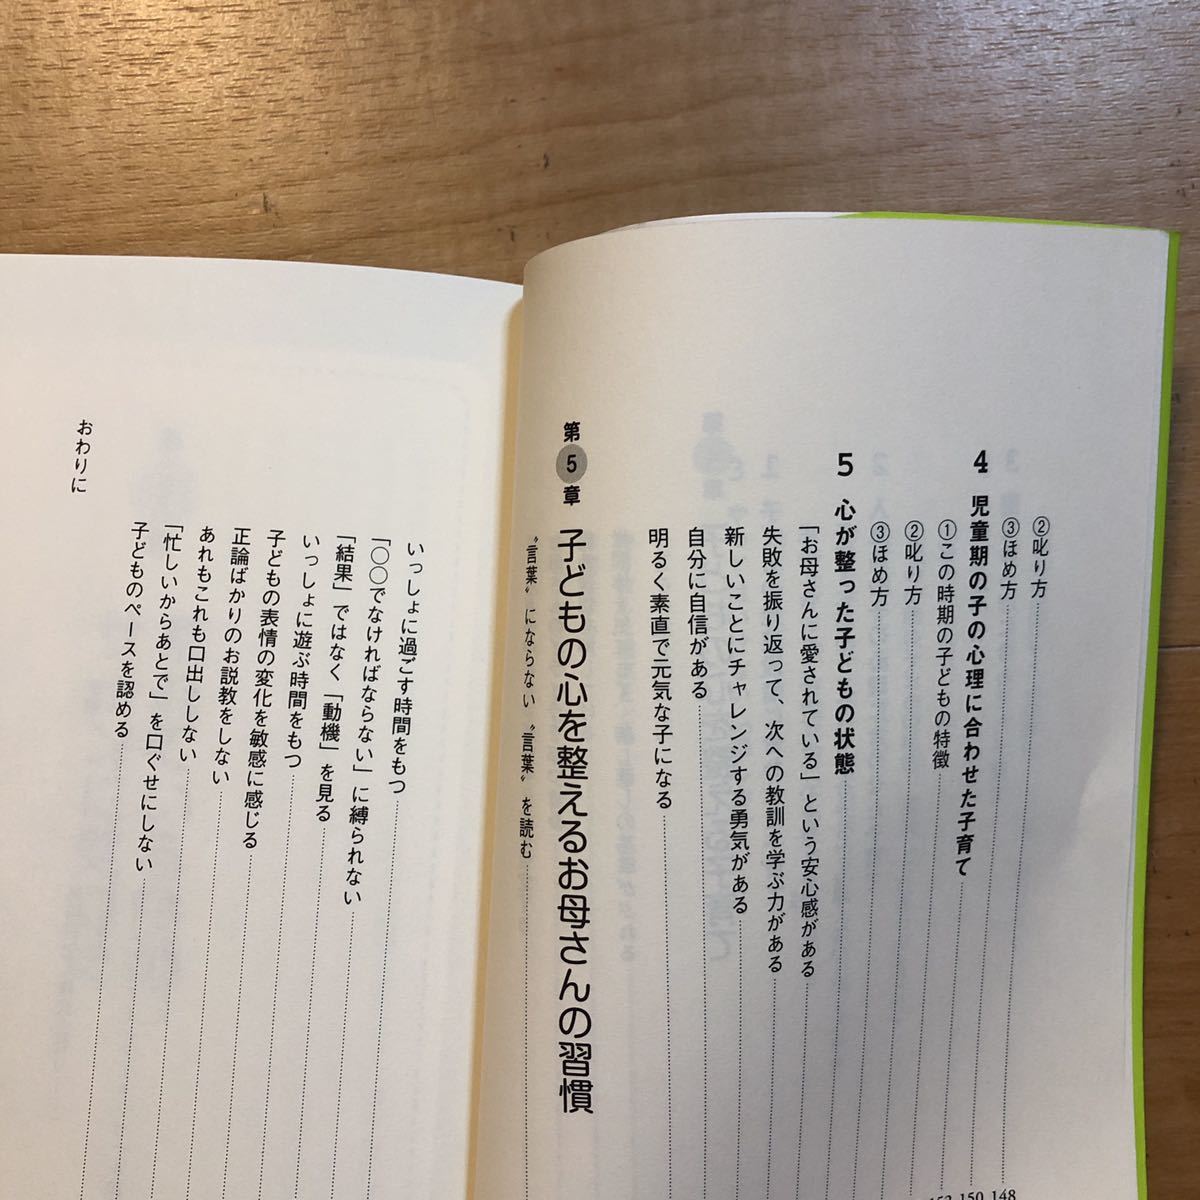 ②叱り方
③ほめ方
4 児童期の子の心理に合わせた子育て
①この時期の子どもの特徴
②叱り方
③ほめ方
5 心が整った子どもの状態
「お母さんに愛されている」という安心感がある
失敗を振り返って、次への教訓を学ぶ力がある
新しいことにチャレンジする勇気がある
自分に自信がある
明るく素直で元気な子になる
第5章 子どもの心を整えるお母さんの習慣
〝言葉〟にならない〝言葉〟を読む
いっしょに過ごす時間をもつ
「○○でなければならない」に縛られない
「結果」ではなく「動機」を見る
いっしょに遊ぶ時間をもつ
子どもの表情の変化を敏感に感じる
正論ばかりのお説教をしない
あれもこれも口出ししない
「忙しいからあとで」を口ぐせにしない
子どものペースを認める
おわりに
148
150